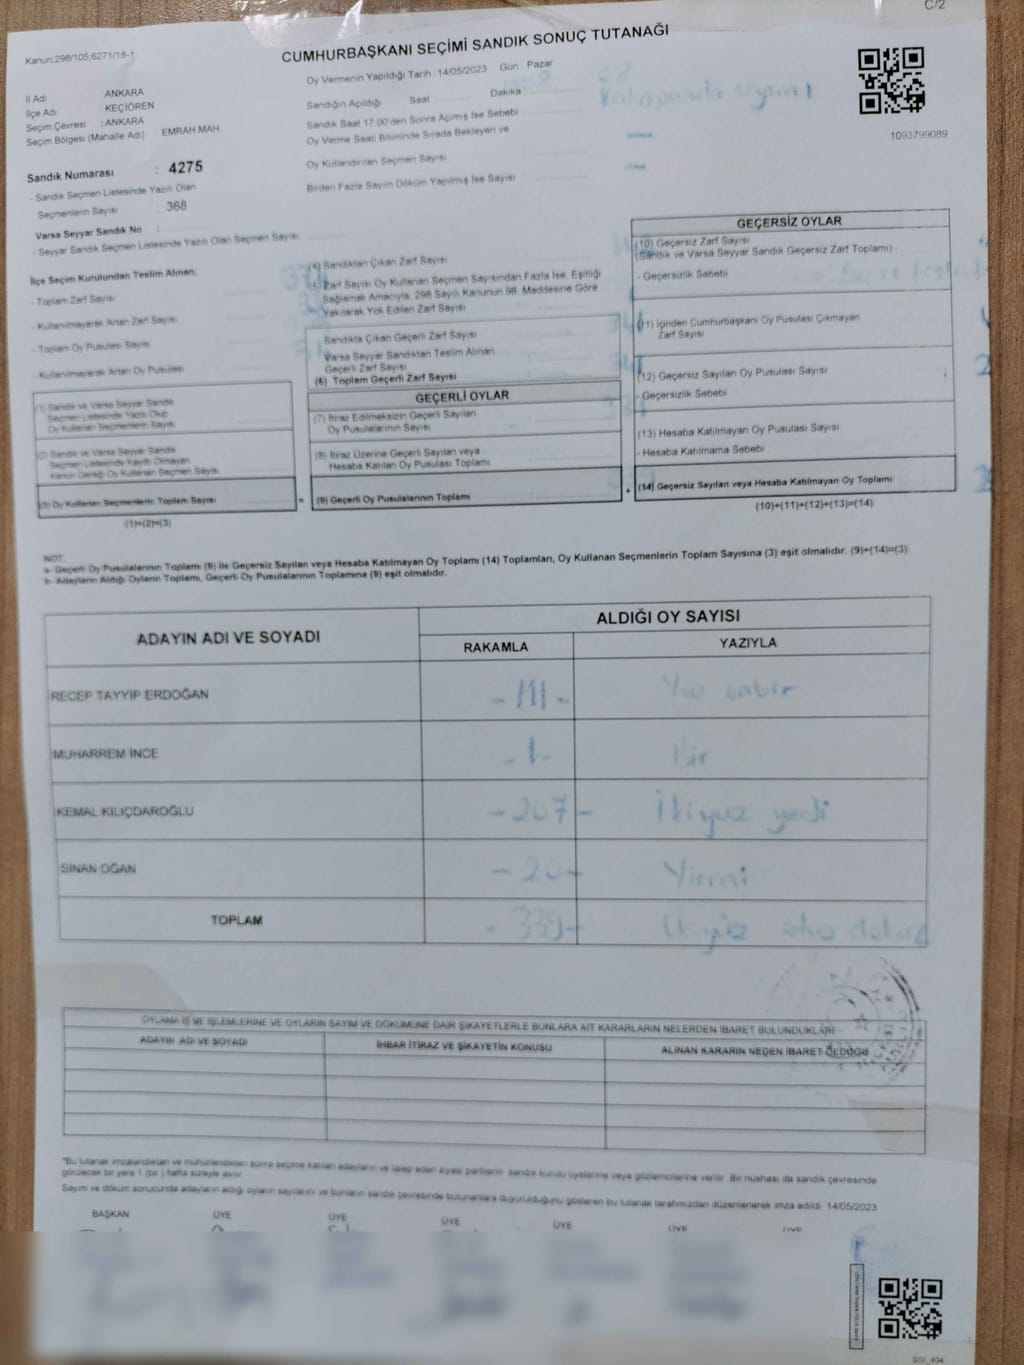 C/2
Kanun:298/105;6271/18-1
CUMHURBAŞKANI SEÇİMİ SANDIK SONUÇ TUTANAĞI
Oy Vermenin Yapıldığı Tarih : 14/05/2023 Gün Pazar
İl Adı ANKARA
İlçe Adı : KEÇİÖREN
Seçim Çevresi : ANKARA
Seçim Bölgesi (Mahalle Adı) : EMRAH MAH.
Sandığın Açıldığı Saat Dakika
Sandık Saat 17:00'den Sonra Açımış İse Sebebi :
Oy Verme Saati Bitiminde Sırada Bekleyen ve
Oy Kullandırılan Seçmen Sayısı
Birden Fazla Sayım Döküm Yapılmış İse Sayısı :
1093799089
Sandık Numarası : 4275
- Sandık Seçmen Listesinde Yazılı Olan
Seçmenlerin Sayısı : 368
Varsa Seyyar Sandık No :
- Seyyar Sandık Seçmen Listesinde Yazılı Olan Seçmen Sayısı
İlçe Seçim Kurulundan Teslim Alınan;
- Toplam Zarf Sayısı
- Kullanılmayarak Artan Zarf Sayısı
- Toplam Oy Pusulası Sayısı
- Kullanılmayarak Artan Oy Pusulası
(1) Sandık ve Varsa Seyyar Sandık
Seçmen Listesinde Yazılı Olup
Oy Kullanan Seçmenlerin Sayısı
(2) Sandık ve Varsa Seyyar Sandık
Seçmen Listesinde Kayıtlı Olmayan
Kanun Gereği Oy Kullanan Seçmen Sayısı
(3) Oy Kullanan Seçmenlerin Toplam Sayısı
(1)+(2)=(3)
(4) Sandıktan Çıkan Zarf Sayısı
(5) Zarf Sayısı Oy Kullanan Seçmen Sayısından Fazla İse, Eşitliği
Sağlamak Amacıyla, 298 Sayılı Kanunun 98. Maddesine Göre
Yakılarak Yok Edilen Zarf Sayısı
Sandıkta Çıkan Geçerli Zarf Sayısı
Varsa Seyyar Sandıktan Teslim Alınan
Geçerli Zarf Sayısı
(6) Toplam Geçerli Zarf Sayısı
GEÇERLİ OYLAR
(7) İtiraz Edilmeksizin Geçerli Sayılan
Oy Pusulalarının Sayısı
(8) İtiraz Üzerine Geçerli Sayılan veya
Hesaba Katılan Oy Pusulası Toplamı
= (9) Geçerli Oy Pusulalarının Toplamı
GEÇERSİZ OYLAR
(10) Geçersiz Zarf Sayısı
(Sandık ve Varsa Seyyar Sandık Geçersiz Zarf Toplamı)
- Geçersizlik Sebebi
(11) İçinden Cumhurbaşkanı Oy Pusulası Çıkmayan
Zarf Sayısı
(12) Geçersiz Sayılan Oy Pusulası Sayısı
- Geçersizlik Sebebi
(13) Hesaba Katılmayan Oy Pusulası Sayısı
- Hesaba Katılmama Sebebi
+ (14) Geçersiz Sayılan veya Hesaba Katılmayan Oy Toplamı
(10)+(11)+(12)+(13)=(14)
NOT:
a- Geçerli Oy Pusulalarının Toplamı (9) ile Geçersiz Sayılan veya Hesaba Katılmayan Oy Toplamı (14) Toplamları, Oy Kullanan Seçmenlerin Toplam Sayısına (3) eşit olmalıdır. (9)+(14)=(3)
b- Adayların Aldığı Oyların Toplamı, Geçerli Oy Pusulalarının Toplamına (9) eşit olmalıdır.
ADAYIN ADI VE SOYADI ALDIĞI OY SAYISI
RAKAMLA YAZIYLA
RECEP TAYYIP ERDOĞAN - 111 - Yüz onbir
MUHARREM İNCE - 1 - Bir
KEMAL KILIÇDAROĞLU - 207 - İkiyüz yedi
SİNAN OĞAN - 20 - Yirmi
TOPLAM - 339 - otuz dokuz
OYLAMA İŞ VE İŞLEMLERİNE VE OYLARIN SAYIM VE DÖKÜMÜNE DAİR ŞİKAYETLERLE BUNLARA AİT KARARLARIN NELERDEN İBARET BULUNDUKLARI
ADAYIN ADI VE SOYADI İHBAR İTİRAZ VE ŞİKAYETİN KONUSU ALINAN KARARIN NEDEN İBARET OLDUĞU
*Bu tutanak imzalandıktan ve mühürlendikten sonra seçime katılan adayların ve talep eden siyasi partilerin sandık kurulu üyelerine veya gözlemcilerine verilir. Bir nüshası da sandık çevresinde
görülecek bir yere 1 (bir) hafta süreyle asılır.
Sayım ve döküm sonucunda adayların aldığı oyların sayılarını ve bunların sandık çevresinde bulunanlara duyurulduğunu gösteren bu tutanak tarafımızdan düzenlenerek imza edildi. 14/05/2023
BAŞKAN ÜYE ÜYE ÜYE ÜYE ÜYE ÜYE